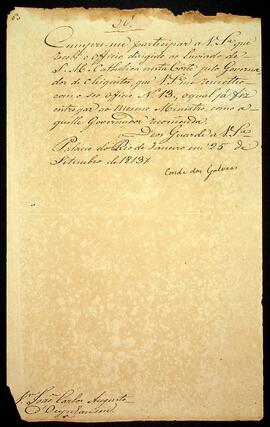 Cumpre-me participar a V. Sa. que
recebi o officio dirigido ao Enviado de
S. M. Catholica nesta Corte pelo Governa
dor de Chiquitos, que V. Sa. remetteo
com o seo officio No. 13, o qual já fiz
entregar ao mesmo Ministro, como a
quelle Governador recomenda.
Deos Guarde a V. Sa.
Palacio do Rio de Janeiro em 25 de
Setembro de 1813
Conde das Galveas
Sr. João Carlos Augusto
d'Oeynhausen